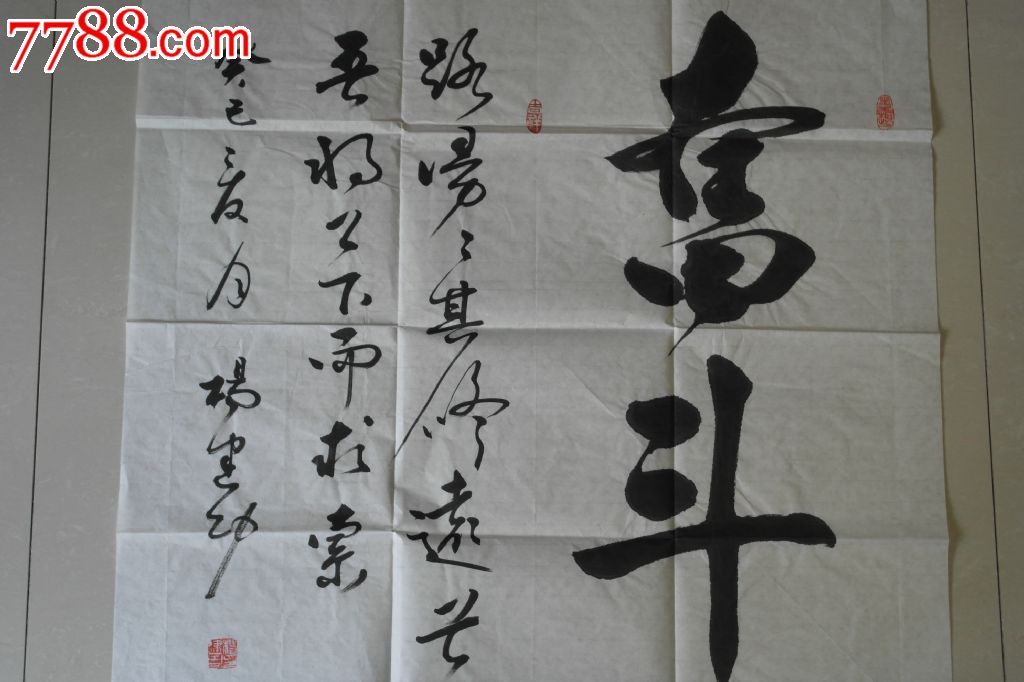 7788.com
奮斗
路漫々其修遠兮
吾將上下而求索
癸巳夏月 楊建
吉祥